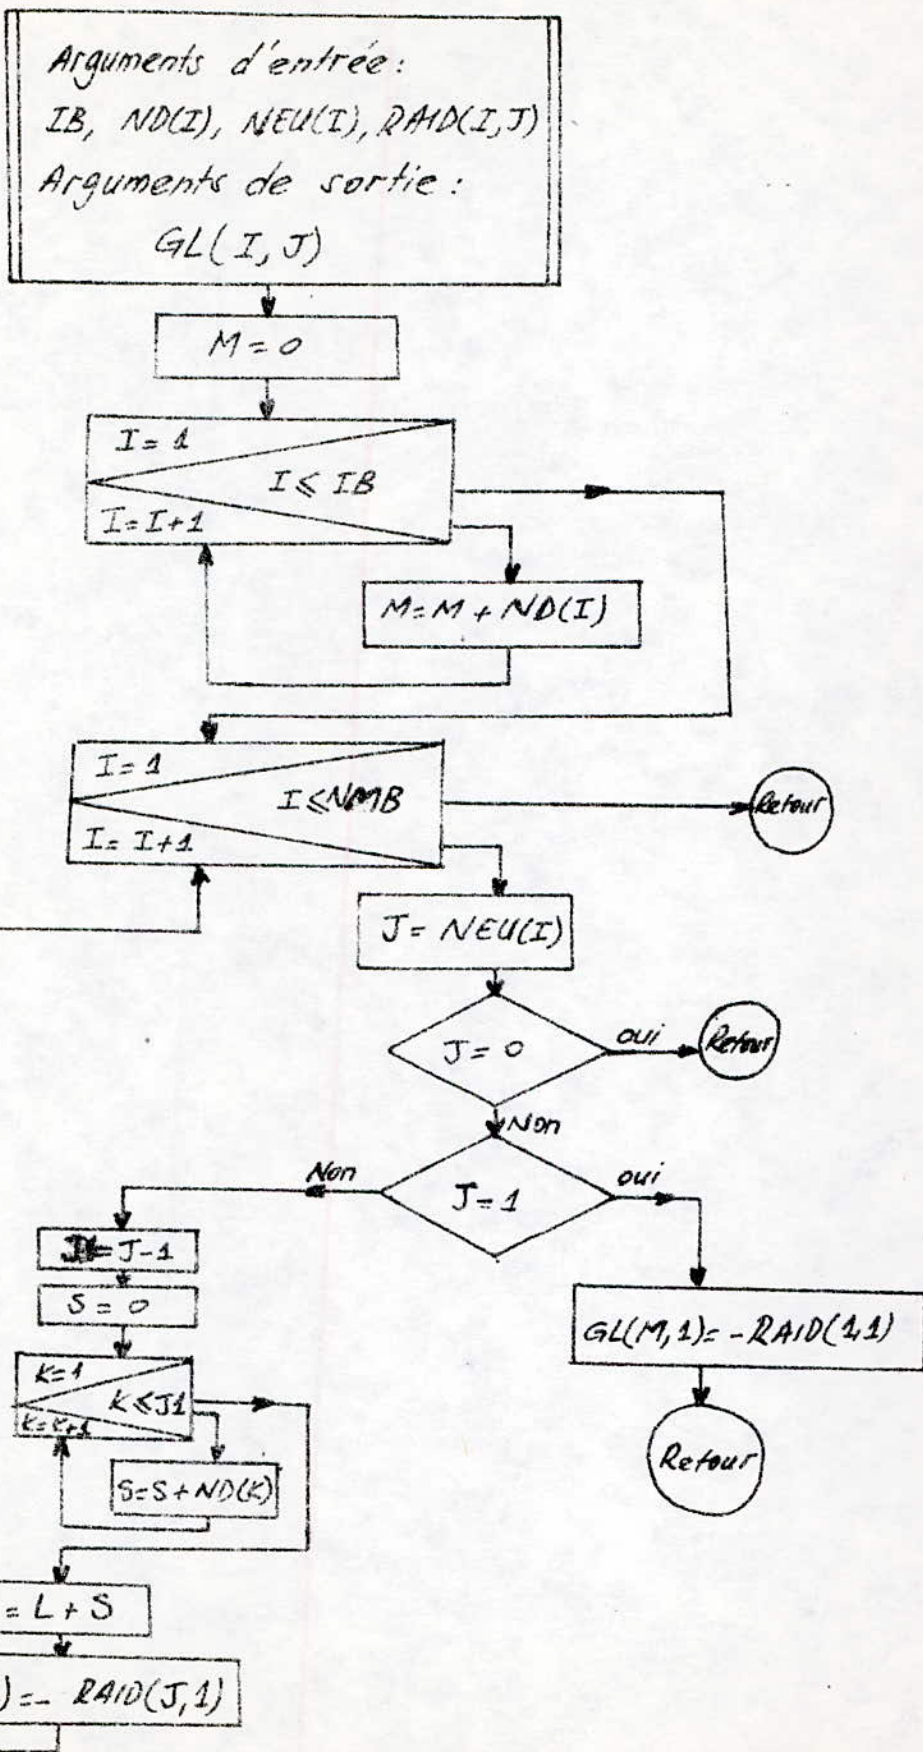 Arguments d'entrée :
IB, ND(I), NEU(I), RAID(I,J)
Arguments de sortie :
GL(I, J)
M = 0
I = 1
I ≤ IB
I = I+1
M = M + ND(I)
I = 1
I ≤ NMB
I = I+1
Retour
J = NEU(I)
J = 0
oui
Retour
Non
Non
J = 1
oui
= J-1
S = 0
GL(M,1) = -RAID(1,1)
K=1
K ≤ J1
K=K+1
Retour
S=S+ND(K)
= L + S
) = - RAID(J,1)